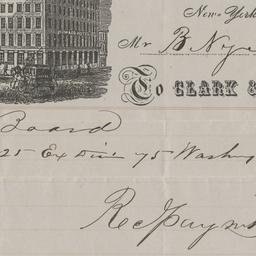 New-York
Mr B Nye
To CLARK &
Board
25 Ex Div 75 Wash
Rec Paym